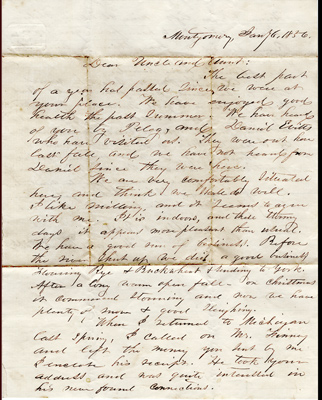 Montgomery, Jany 6, 1856.
Dear Uncle and Aunt:
The best part
of a year had passed since we were at
your place. We have enjoyed good
health the past Summer. We have heard
of you by and Daniel
who have visited us. They were out here
last fall, and we have not heard from
Daniel since they were here.
We are comfortably situated
here, and think we shall do well.
I like milling, and it seems to agree
with me. It is indoors, and these stormy
days it appears more pleasant than usual.
We have a good run of business. Before
the river shut up, we did a good business
flouring Rye & Buckwheat & sending to York.
After a long warm open fall - on Christmas
it commenced storming and now we have
plenty of snow & good sleighing.
When I returned to Michigan
last Spring, I called on Mr. Finney
and left the money you sent by me
I enclose his receipt. He took your
address and was quite interested in
his new found connections.